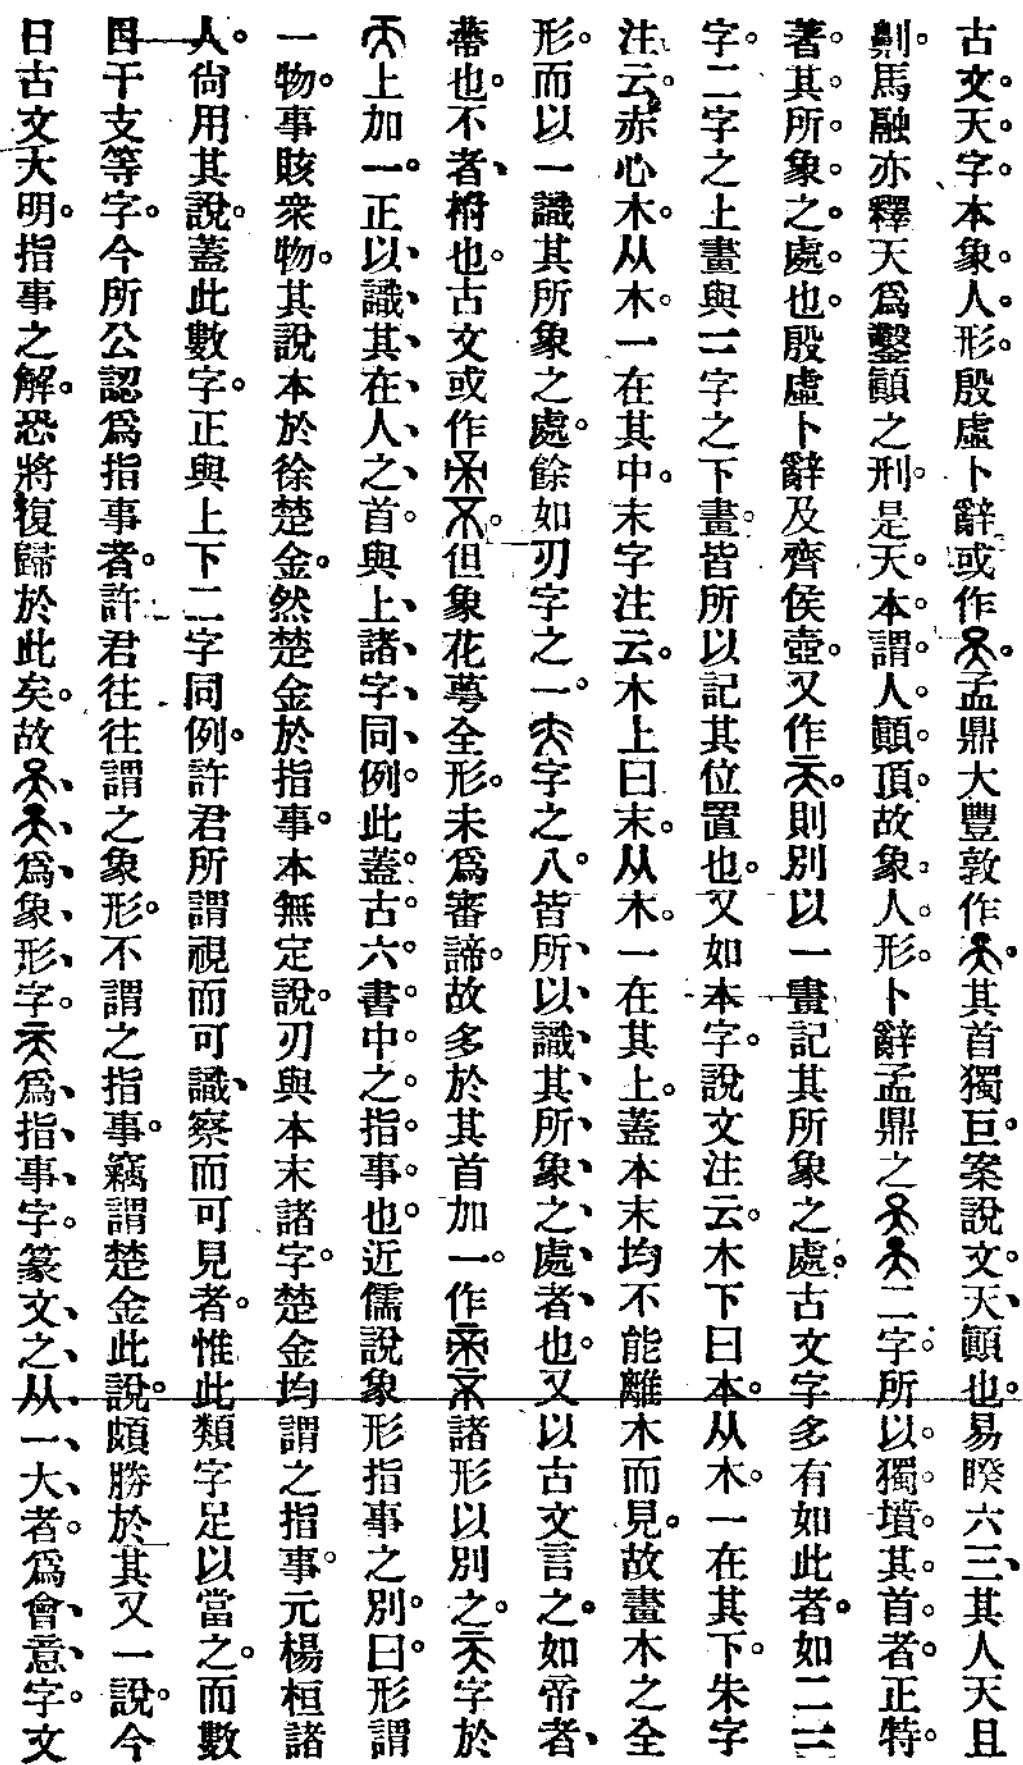 古文天字本象人形殷虛卜辭或作孟鼎大豐敦作其首獨巨案說文天顚也易睽六三其人天且
劓馬融亦釋天爲鑿顚之刑是天本謂人顚頂故象人形卜辭孟鼎之二字所以獨墳其首者正特
著其所象之處也殷虛卜辭及齊侯壺又作則別以一畫記其所象之處古文字多有如此者如二二
字二字之上畫與二字之下畫皆所以記其位置也又如本字說文注云木下曰本从木一在其下朱字
注云赤心木从木一在其中末字注云木上曰末从木一在其上蓋本末均不能離木而見故畫木之全
形而以一識其所象之處餘如刃字之一字之八皆所以識其所象之處者也又以古文言之如帝者
蔕也不者柎也古文或作但象花萼全形未爲審諦故多於其首加一作諸形以別之字於
上加一正以識其在人之首與上諸字同例此蓋古六書中之指事也近儒說象形指事之別曰形謂
一物事賅衆物其說本於徐楚金然楚金於指事本無定說刃與本末諸字楚金均謂之指事元楊桓諸
人尙用其說蓋此數字正與上下二字同例許君所謂視而可識察而可見者惟此類字足以當之而數
目干支等字今所公認爲指事者許君往往謂之象形不謂之指事竊謂楚金此說頗勝於其又一說今
日古文大明指事之解恐將復歸於此矣故爲象形字爲指事字篆文之从一大者爲會意字文